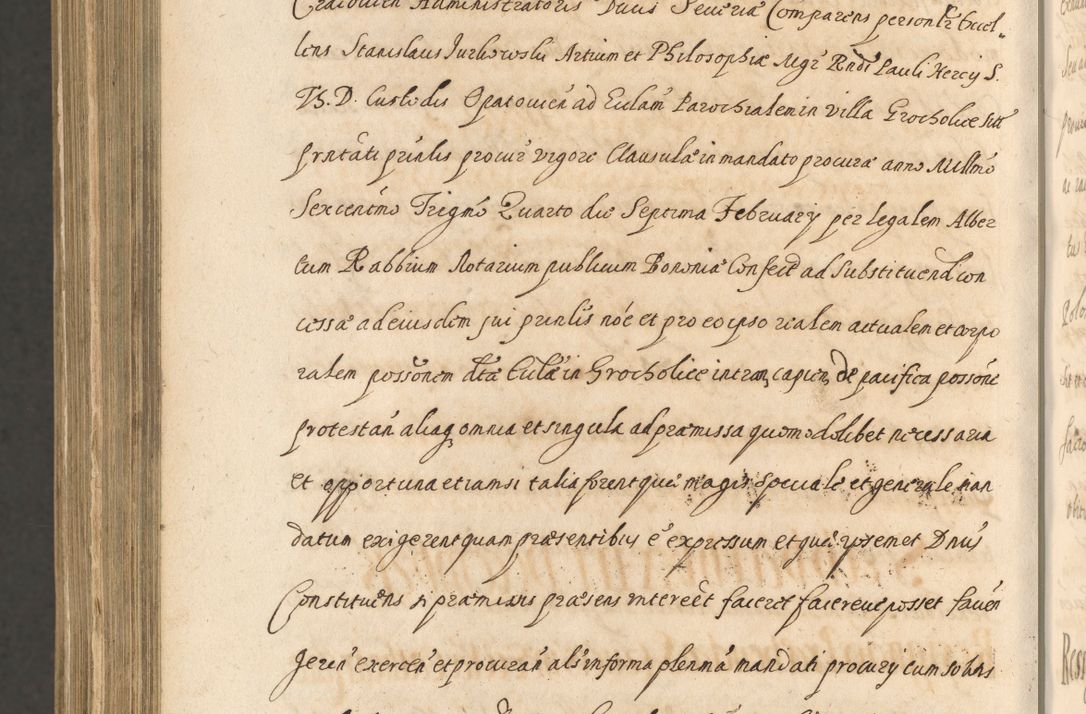 Cracovien Administratoris Ducis Severiæ Comparens personlr Excel„
lens Stanislaus Jurkowski Artium et Philosophiæ Mgr Rndi Pauli Hercij S.
Th. D. Custodis Opatovien ad Eccłam Parochialem in villa Grocholice sitt
prntati prinlis procur vigore Clausulæ in mandato procuræ anno Millmo
Sexcentmo Trigmo Quarto die Septima February per legalem Alber
tum Rabbium Notarium publicum Bononiæ Confect ad substituend con
cessæ ad eiusdem sui prinlis nóe et pro eo ipso realem actualem et corpo
ralem possonem dtæ Eccłæ in Grocholice intran capien de pacifica possone
protestan aliaq omnia et singula ad præmissa quomodolibet necessaria
et opportuna etiamsi talia forent quæ magis speciale et generale man
datum exigerent quam præsentibus é expressum et quæ ipsemet Dnus
Constituens si præmissis præsens intereet faceret facereve posset facien
geren exercen et procuran als in forma plenma mandati procury cum solitis